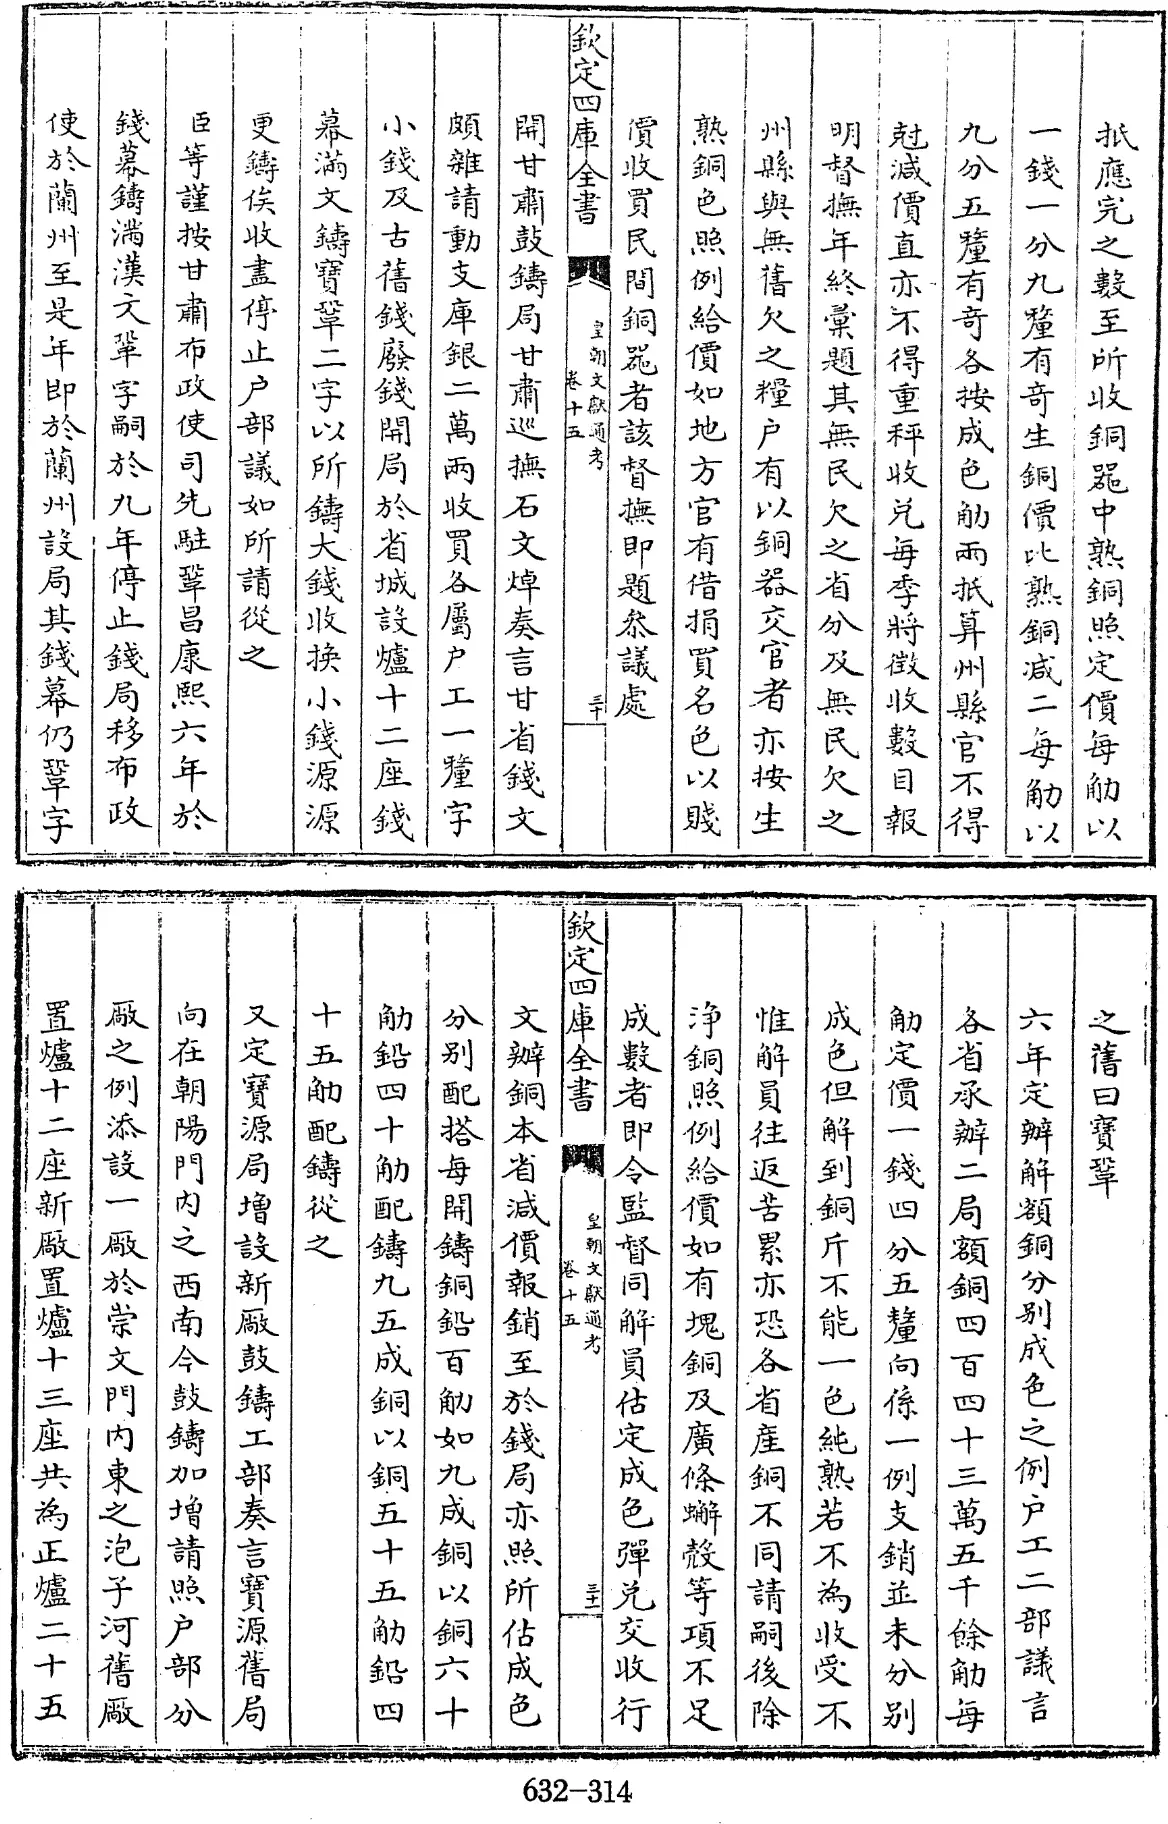 抵應完之數至所收銅器中熟銅照定價每觔以
一錢一分九釐有奇生銅價比熟銅減二每觔以
九分五釐有奇各按成色觔兩抵算州縣官不得
尅減價直亦不得重秤收兌每季將徵收數目報
明督撫年終彚題其無民欠之省分及無民欠之
州縣與無舊欠之糧户有以銅器交官者亦按生
熟銅色照例給價如地方官有借捐買名色以賤
價收買民間銅器者該督撫即題叅議處
欽定四庫全書
皇朝文獻通考
卷十五
三十
開甘肅鼓鑄局甘肅巡撫石文焯奏言甘省錢文
頗雜請動支庫銀二萬兩收買各屬户工一釐字
小錢及古舊錢廢錢開局於省城設爐十二座錢
幕滿文鑄寶鞏二字以所鑄大錢收換小錢源源
更鑄俟收盡停止户部議如所請從之
臣等謹按甘肅布政使司先駐鞏昌康熙六年於
錢幕鑄滿漢文鞏字嗣於九年停止錢局移布政
使於蘭州至是年即於蘭州設局其錢幕仍鞏字
之舊曰寶鞏
六年定辦解額銅分別成色之例户工二部議言
各省承辦二局額銅四百四十三萬五千餘觔每
觔定價一錢四分五釐向係一例支銷並未分別
成色但解到銅斤不能一色純熟若不為收受不
惟解員往返苦累亦恐各省產銅不同請嗣後除
淨銅照例給價如有塊銅及廣條蠏殼等項不足
成數者即令監督同解員估定成色彈兌交收行
欽定四庫全書
皇朝文獻通考
卷十五
三十一
文辦銅本省減價報銷至於錢局亦照所估成色
分別配搭每開鑄銅鉛百觔如九成銅以銅六十
觔鉛四十觔配鑄九五成銅以銅五十五觔鉛四
十五觔配鑄從之
又定寶源局增設新廠鼓鑄工部奏言寶源舊局
向在朝陽門內之西南今鼓鑄加增請照户部分
廠之例添設一廠於崇文門內東之泡子河舊廠
置爐十二座新廠置爐十三座共為正爐二十五
632-314